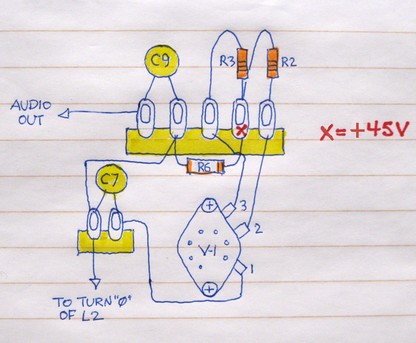 C9
R3
R2
AUDIO
OUT
X
X=+45V
R6
C7
3
V-1
2
1
TO TURN "Ø"
OF L2